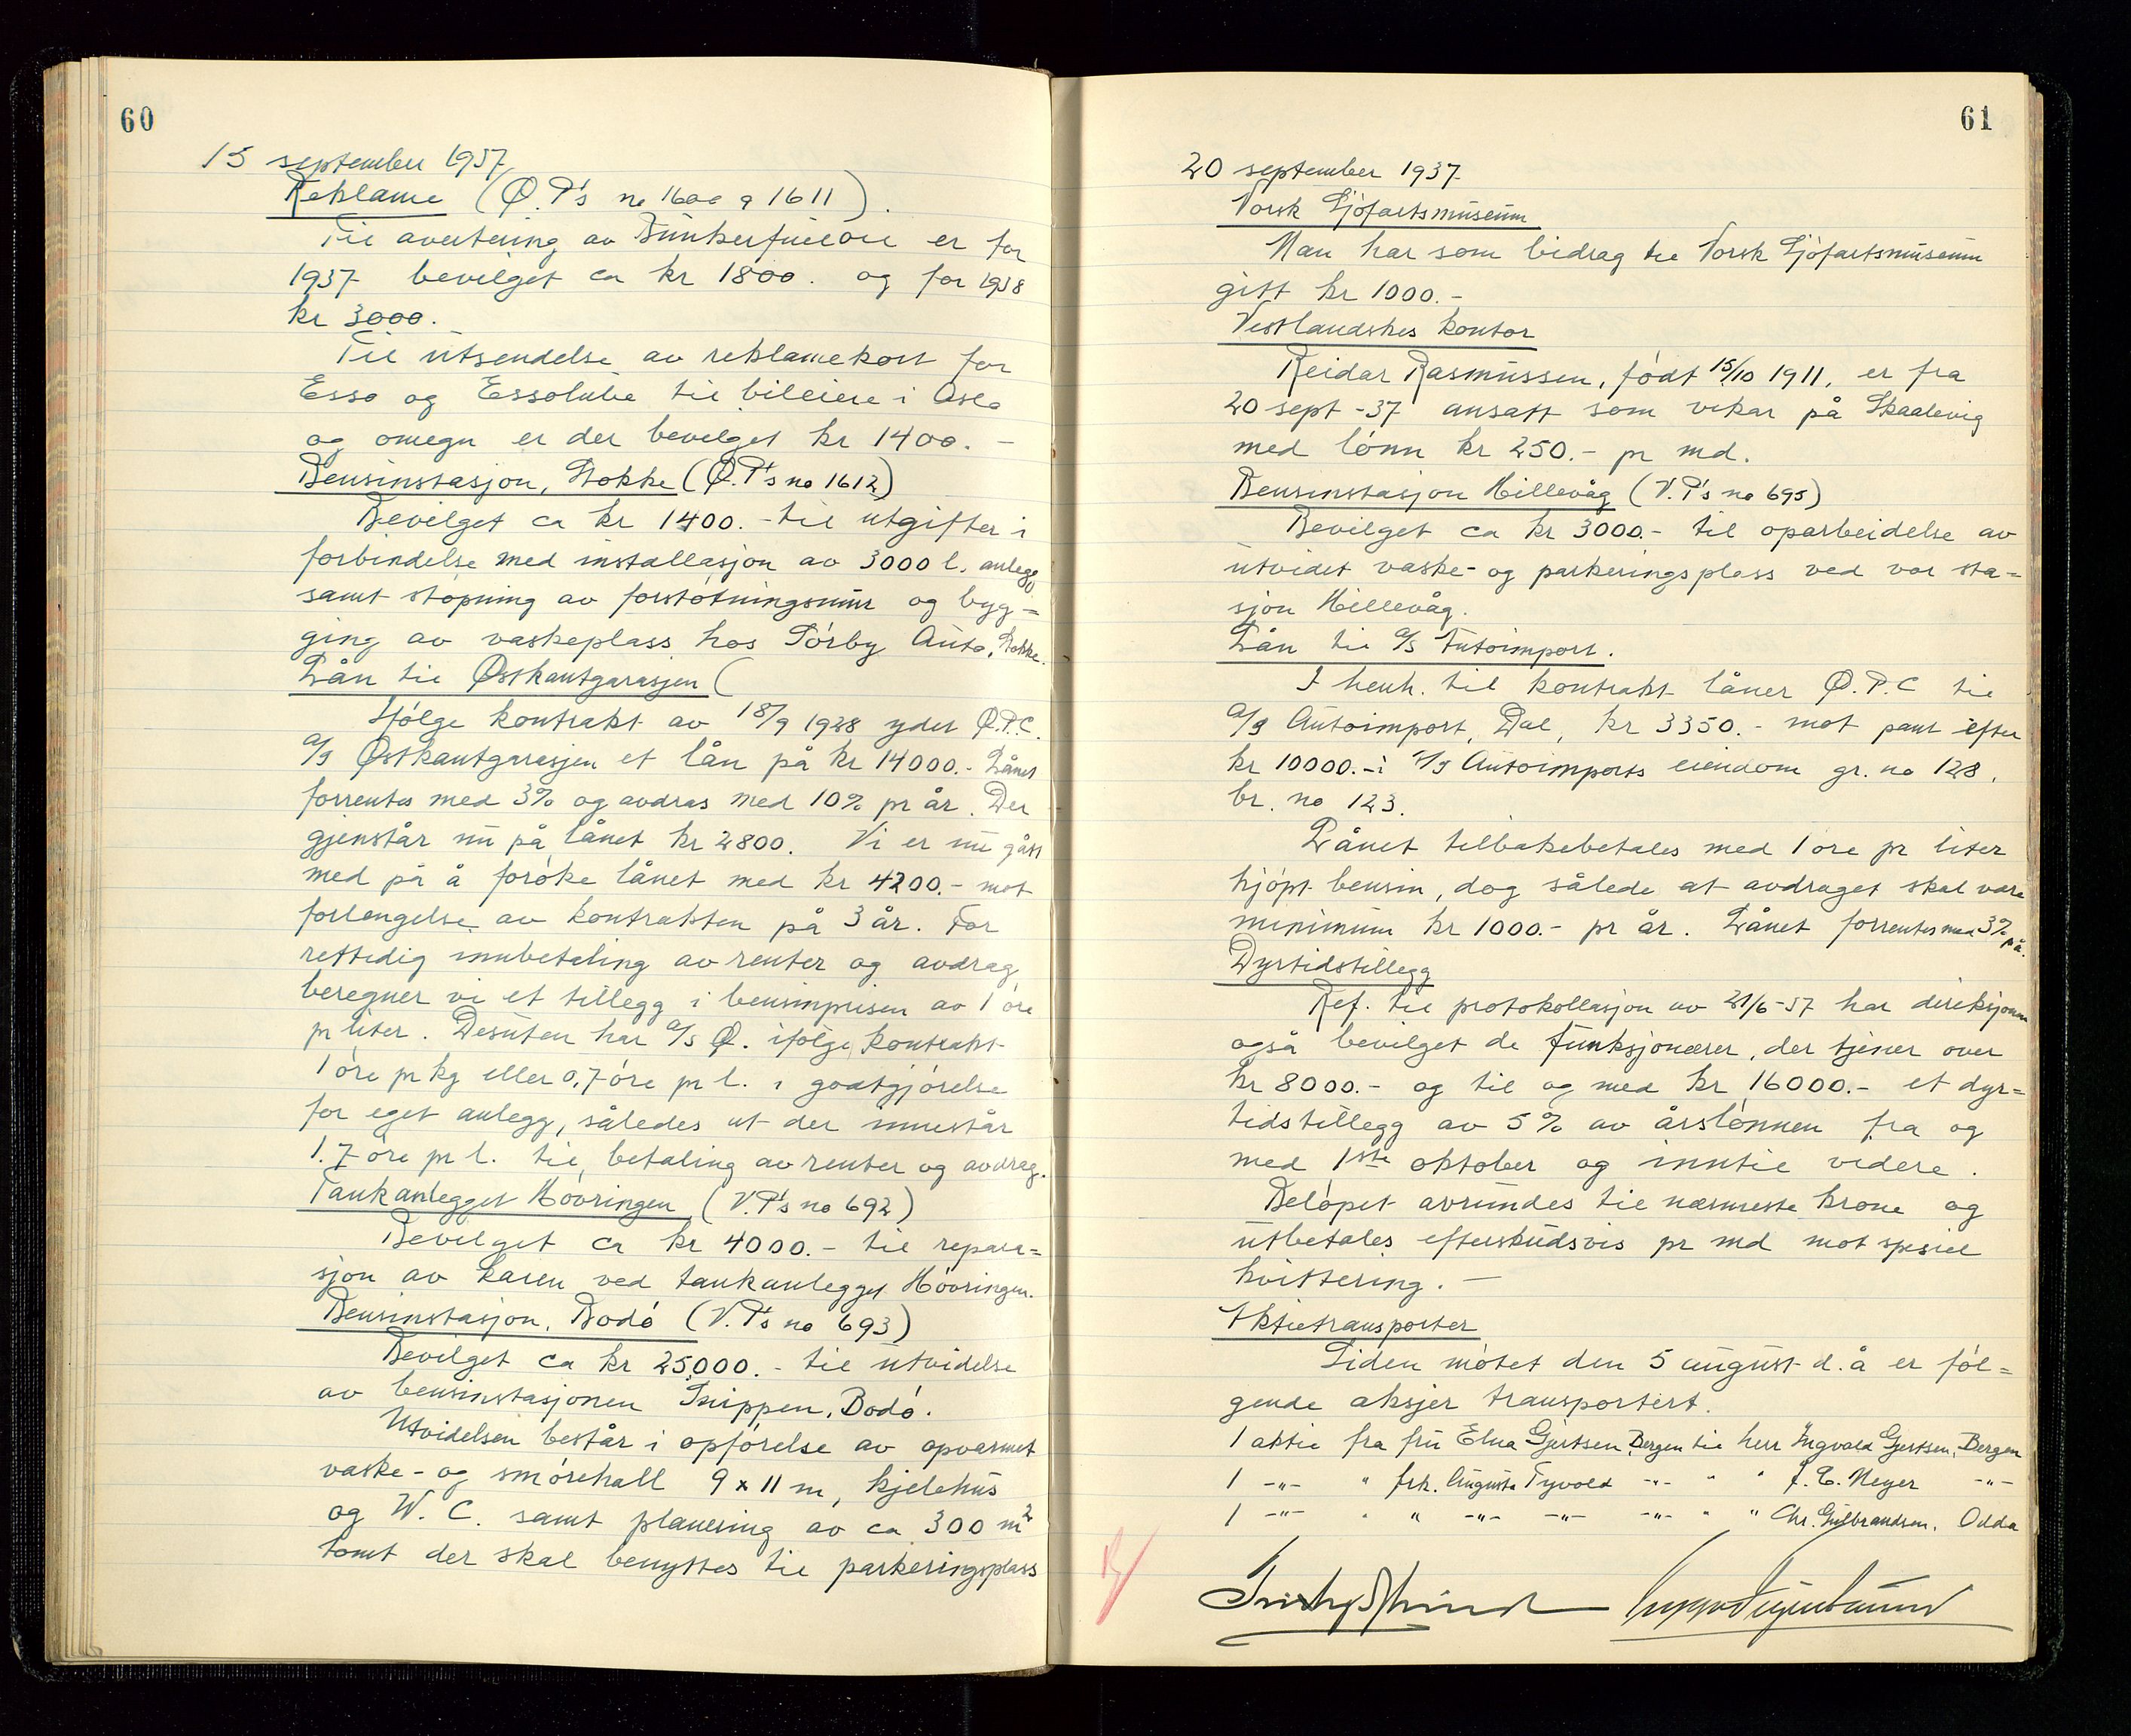 60
15 september 1937
Reklame (Ø.P's no 1600 o 1611).
Til avertering av Bunkerfueloil er for
1937 bevilget ca kr 1800. og for 1938
kr 3000.
Til utsendelse av reklamekort for
Esso og Essolube til bileiere i Oslo
og omegn er der bevilget kr 1400. -
Bensinstasjon, Stokke (Ø.P's no 1612)
Bevilget ca kr 1400.- til utgifter i
forbindelse med installasjon av 3000 l. anlegg
samt støpning av forstøtningsmur og byg=
ging av vaskeplass hos Sørby Auto, Stokke.
Lån til Østkantgarasjen (
Ifølge kontrakt av 18/9 1928 yder Ø.P.C.
A/S Østkantgarasjen et lån på kr 14000.- Lånet
forrentes med 3% og avdras med 10% pr år. Der
gjenstår nu på lånet kr 2800. Vi er nu gått
med på å forøke lånet med kr 4200.- mot
forlengelse av kontrakten på 3 år. For
rettidig innbetaling av renter og avdrag
beregner vi et tillegg i bensinprisen av 1 øre
pr liter. Desuten har A/S Ø. ifølge kontrakt
1 øre pr kg eller 0,7 øre pr l. i godtgjørelse
for eget anlegg, således at der innestår
1.7 øre pr l. til betaling av renter og avdrag.
Tankanlegget Høvringen (V.P's no 692)
Bevilget ca kr 4000.- til repara=
sjon av kaien ved tankanlegget Høvringen.
Bensinstasjon, Bodø (V.P's no 693)
Bevilget ca kr 25.000.- til utvidelse
av bensinstasjonen Snippen, Bodø.
Utvidelsen består i opførelse av opvarmet
vaske- og smørehall 9 x 11 m, kjelehus
og W. C. samt planering av ca 300 m2
tomt der skal benyttes til parkeringsplass
61
20 september 1937
Norsk Sjøfartsmuseum
Man har som bidrag til Norsk Sjøfartsmuseum
gitt kr 1000.-
Vestlandskes kontor
Reidar Rasmussen, født 15/10 1911, er fra
20 sept -37 ansatt som vikar på Skaalevig
med lønn kr 250.- pr md.
Bensinstasjon Hillevåg (V.P's no 695)
Bevilget ca kr 3000.- til oparbeidelse av
utvidet vaske- og parkeringsplass ved vor sta=
sjon Hillevåg.
Lån til A/S Autoimport.
I henh. til kontrakt låner Ø.P.C til
A/S Autoimport, Dal, kr 3350.- mot pant efter
kr 10000.- i A/S Autoimports eiendom gr. no 128,
br. no 123.
Lånet tilbakebetales med 1 øre pr liter
kjøpt bensin, dog således at avdraget skal være
minimum kr 1000.- pr år. Lånet forrentes med 3% p.å.
Dyrtidstillegg
Ref. til protokollasjon av 21/6-37 har direksjonen
også bevilget de funksjonærer, der tjener over
kr 8000.- og til og med kr 16000.- et dyr=
tidstillegg av 5% av årslønnen fra og
med 1ste oktober og inntil videre.
Beløpet avrundes til nærmeste krone og
utbetales efterskudsvis pr md mot spesiel
kvittering. -
Aktietransporter
Siden møtet den 5 august d.å er føl=
gende aksjer transportert.
1 aktie fra fru Elna Gjertsen, Bergen til herr Ingvald Gjertsen, Bergen
1 -"- " frk. Augusta Tyvold -"- " " J. E. Meyer -"-
1 -"- " " -"- -"- -"- " " Chr. Gulbrandsen, Odda